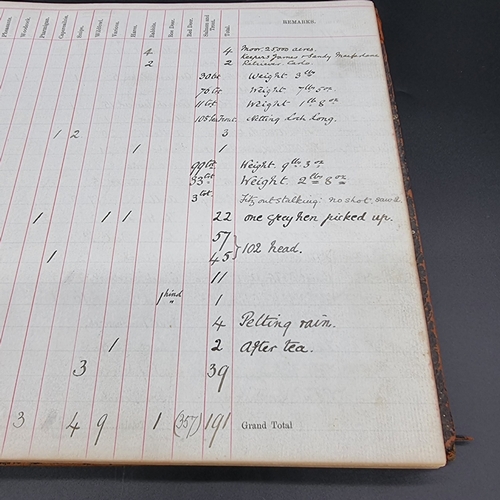 Pheasants. Woodcock. Ptarmigan. Capercailzie. Snipe. Wildfowl. Various. Hares. Rabbits. Roe Deer. Red Deer. Salmon and Trout. Total. REMARKS.
4 4 Moor. 25000 acres.
2 2 Keepers James & Sandy Macfadane Retriever.
30 Weight 3 lbs
70 Weight 7 lbs 5 oz
11 Weight 1 lb 8 oz
105 Netting Loch Long.
1 2 3
1 1
99 Weight 9 lbs 3 oz
33 Weight 2 lbs 8 oz
3 out stalking: no shot.
1 1 1 22 one grey hen picked up.
57
1 45 } 102 head.
11
1 hind " 1
4 Pelting rain.
1 2 After tea.
3 39
3 4 9 1 (357) 191 Grand Total